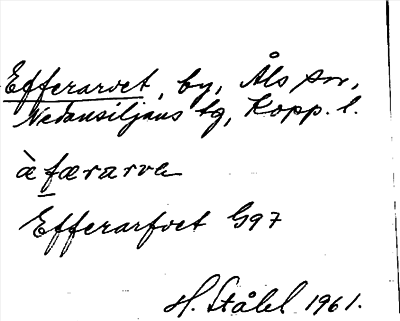 Efferarvet, by, Åls sn,
Nedansiljans tg, Kopp. l.
à færarva
Efferarfvet G97
H. Ståhl 1961.